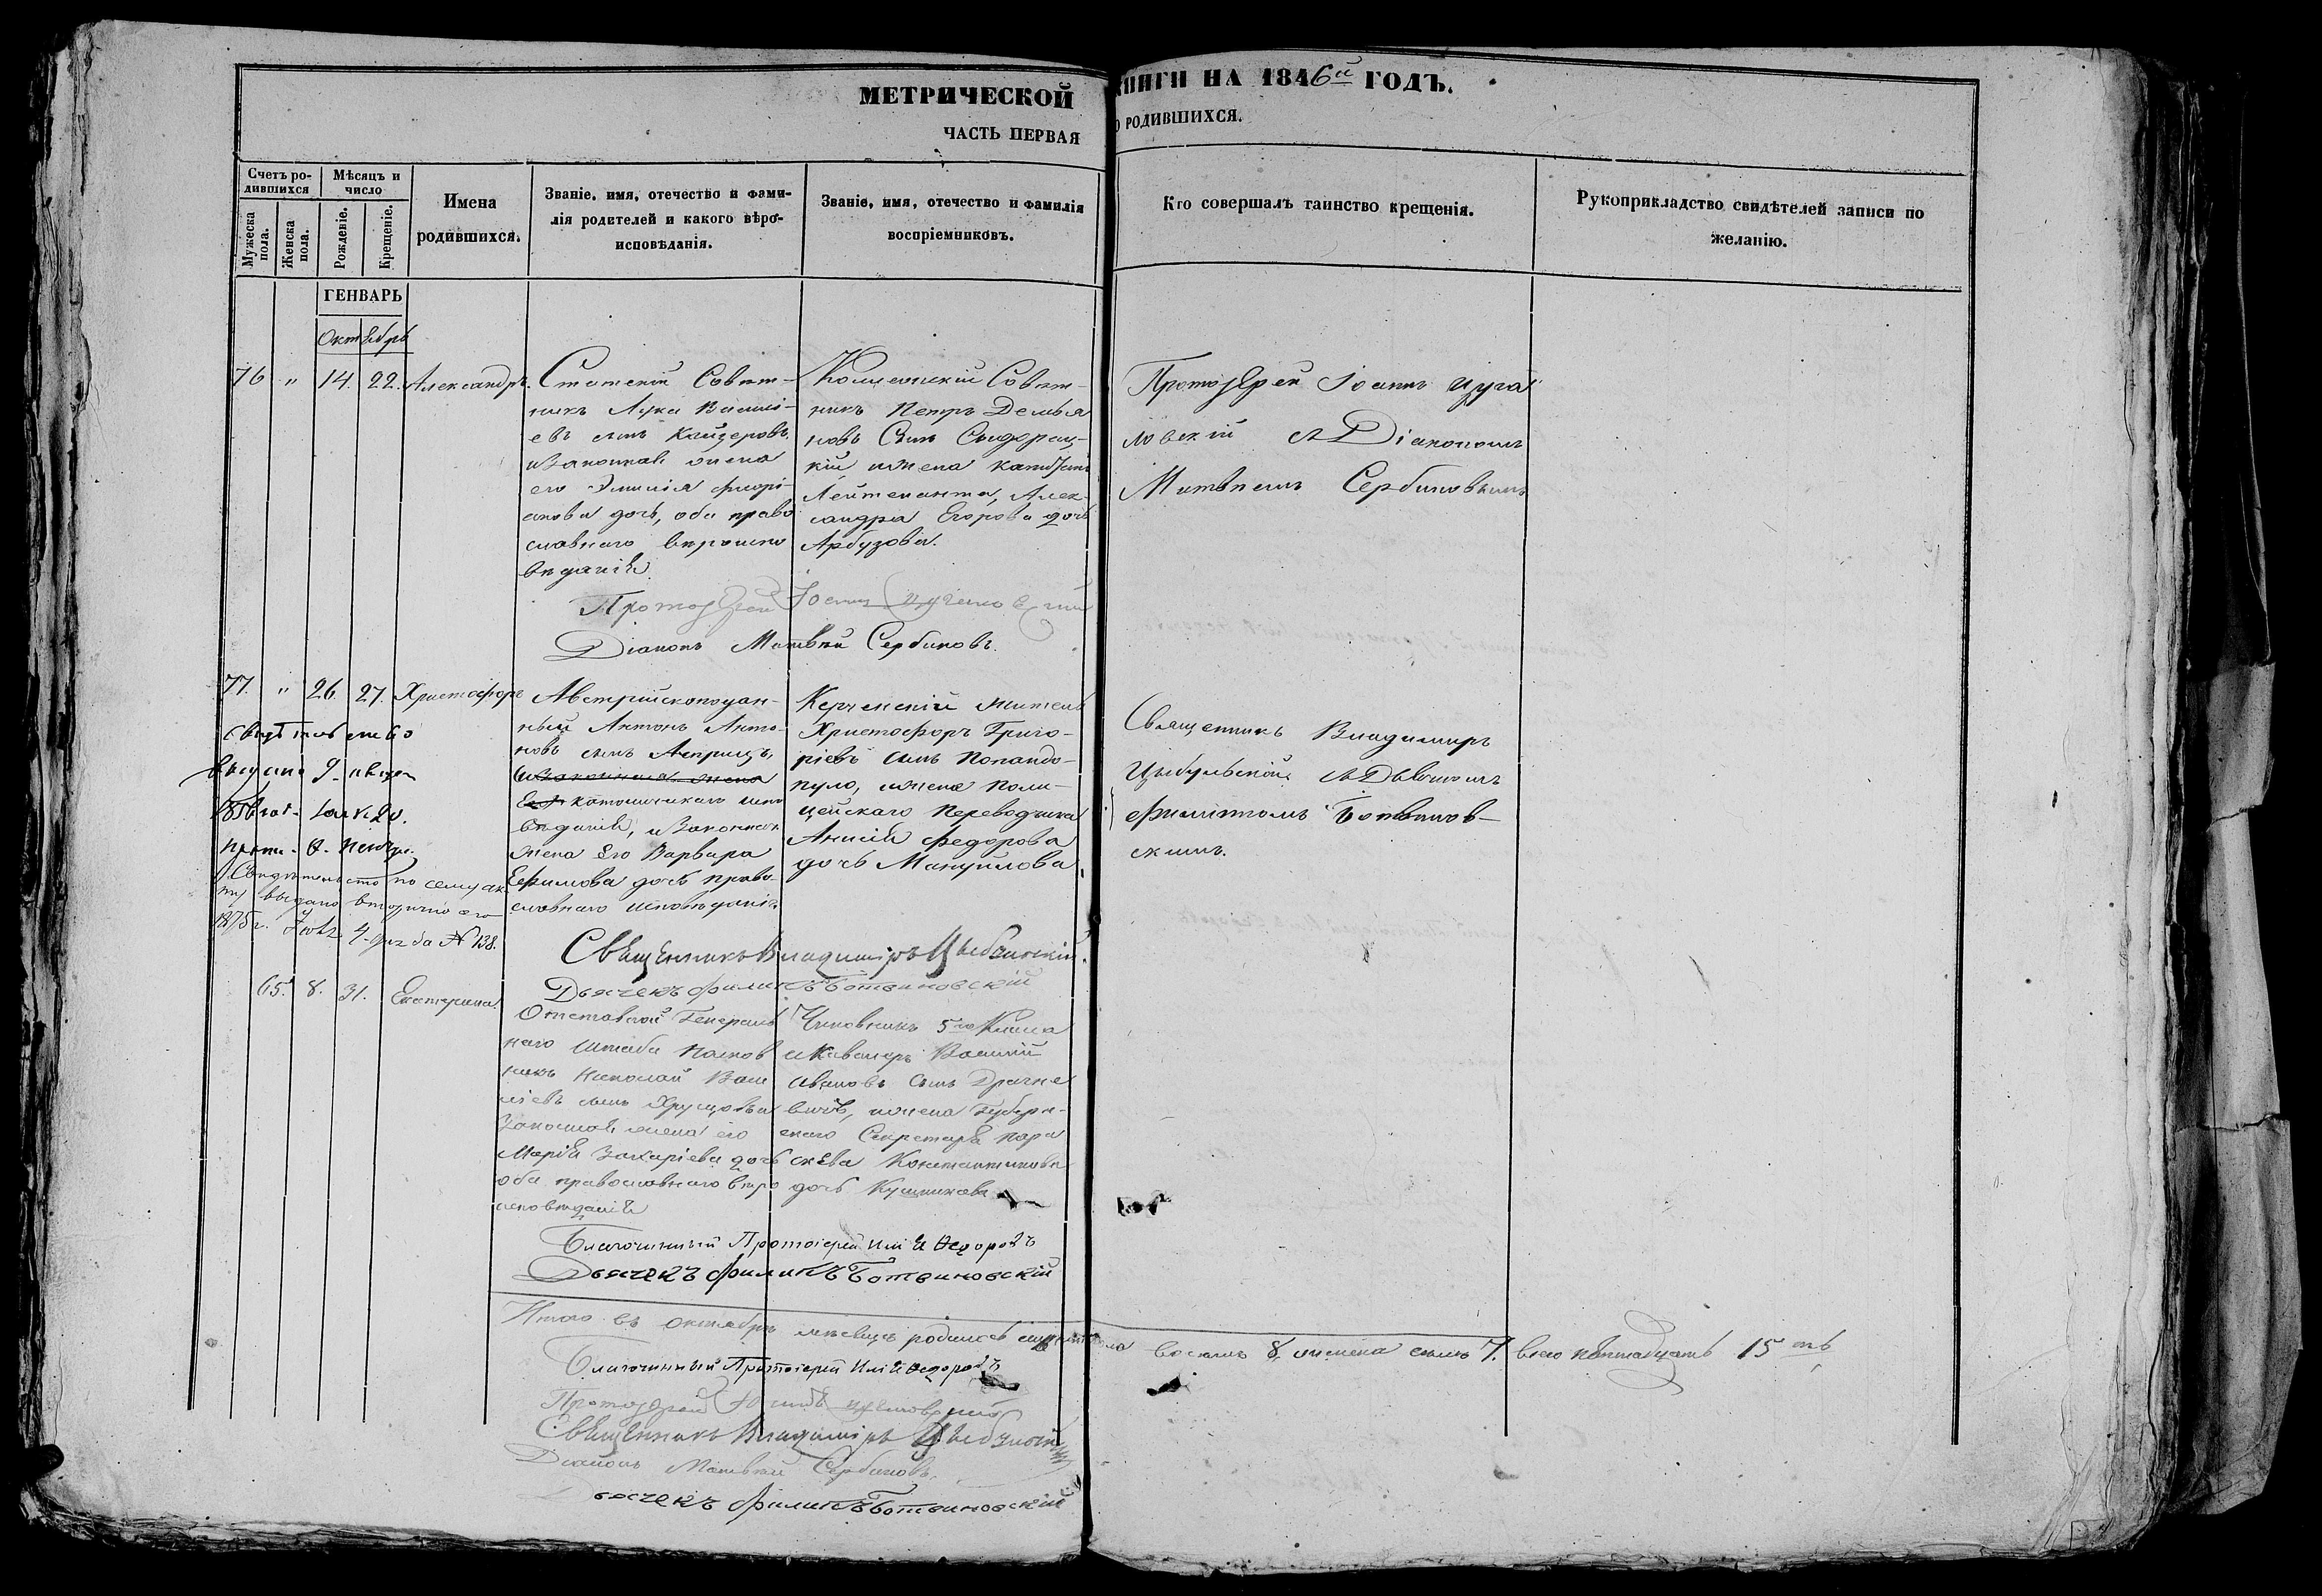 МЕТРИЧЕСКОЙ КНИГИ НА 1846й ГОДЪ.
ЧАСТЬ ПЕРВАЯ О РОДИВШИХСЯ.
Счетъ ро-
дившихся
Мужеска пола.
Женска пола.
Мѣсяцъ и
число
Рожденіе.
Крещеніе.
Имена
родившихся.
Званіе, имя, отечество и фами-
лія родителей и какого вѣро-
исповѣданія.
Званіе, имя, отечество и фамилія
воспріемниковъ.
Кто совершалъ таинство крещенія.
Рукоприкладство свидѣтелей записи по
желанію.
ГЕНВАРЬ
Октябрь
76 " 14. 22. Александръ.
Статскій Совѣт-
никъ Лука Василі-
евъ сынъ
и законная жена
его Эмилія Флорі-
анова дочь, оба право
славнаго вѣроиспо
вѣданія.
Коллежскій Совѣт-
никъ Петръ Демья
новъ Сынъ
кій и жена
Лейтенанта, Алек-
сандра Егорова дочь
Арбузова.
Протоіерей Іоаннъ
ловскій съ Діакономъ
Матвѣемъ Сербиновымъ
Протоіерей Іоаннъ
Діаконъ Матвѣй Сербиновъ.
77. " 26. 27. Христофоръ
Австрійскоподан-
ный Антонъ Анто-
новъ сынъ
и законная жена
Его католическаго испо
вѣданія, и законная
жена Его Варвара
Ефимова дочь право-
славнаго исповѣданія
Керченскій житель
Христофоръ Григо-
ріевъ сынъ Попандо-
пуло, и жена Поли-
цейскаго Переводчика
Анисія Федорова
дочь Мануйлова
Священникъ Владимиръ
Цыбульскій съ Дьячкомъ
Филиппомъ Ботвинов-
скимъ.
Свидѣтельство
выдано
Свидѣтельство по сему ак
ту выдано вторично
1875 г. 4. дня за № 138.
Священникъ Владиміръ Цыбульскій.
Дьячекъ Филипъ Ботвиновскій
65. 8. 31. Екатерина.
Отставной Генераль
наго Штаба Полков
никъ Николай Васи
ліевъ сынъ Хрущовъ и
Законная жена его
Марія Захаріева дочь
оба православнаго вѣро
исповѣданія
Чиновникъ 5го Класса
и Кавалеръ Василій
Ивановъ сынъ
вичъ, и жена Губерн-
скаго Секретаря Пара
скева Константинова
дочь Кушникова
Благочинный Протоіерей Илія Федоровъ
Дьячекъ Филипъ Ботвиновскій
Итого въ Октябрѣ мѣсяцѣ родилось мужеска пола восемь 8, женска семь 7. всего пятнадцать 15ть
Благочинный Протоіерей Илія Федоровъ
Протоіерей
Священникъ Владиміръ Цыбульскій
Діаконъ Матвѣй Сербиновъ.
Дьячекъ Филипъ Ботвиновскій